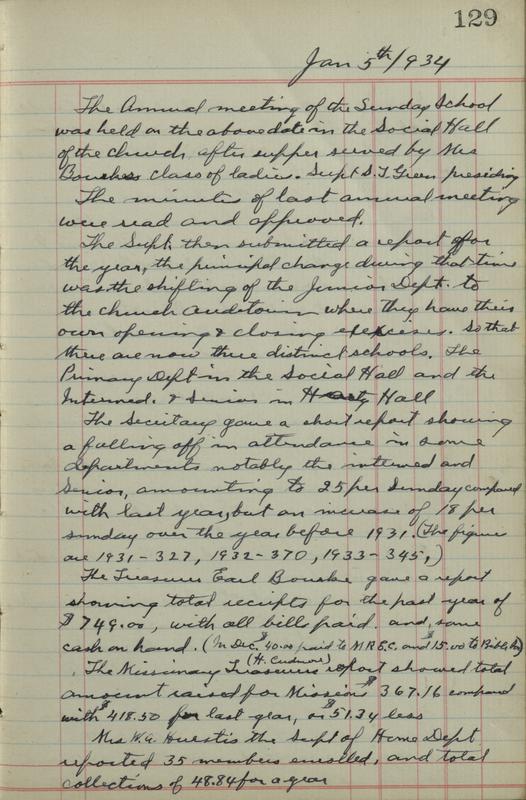 129
Jan 5th/934
The Annual meeting of the Sunday School
was held on the above date in the Social Hall
of the Church, after supper served by Mrs
class of ladies. Supt S.J. Green presiding
The minutes of last annual meeting
were read and approved.
The Supt. then submitted a report for
the year, the principal change during that time
was the shifting of the Junior Dept. to
the church auditorium where they have their
own opening & closing exercises. So that
there are now three distinct schools. The
Primary Dept in the Social Hall and the
Intermed. & Senior in Hall
The Secretary gave a short report showing
a falling off in attendance in some
departments notably the intermed and
Senior, amounting to 25 per Sunday compared
with last year, but an increase of 18 per
sunday over the year before 1931. (The figures
are 1931-327, 1932-370, 1933-345,)
The Treasurer Earl Bourke gave a report
showing total receipts for the past year of
$749.00, with all bills paid. and, some
cash on hand. (In Dec. $40.00 paid to M.R.E.C. and $15.00 to
(H. Cudmore)
The Missionary Treasurers report showed total
amount raised for Missions $367.16 compared
with $418.50 for last year, or $51.34 less
Mrs W.G. Huestis the Supt of Home Dept
reported 35 members enrolled, and total
collections of 48.84 for a year